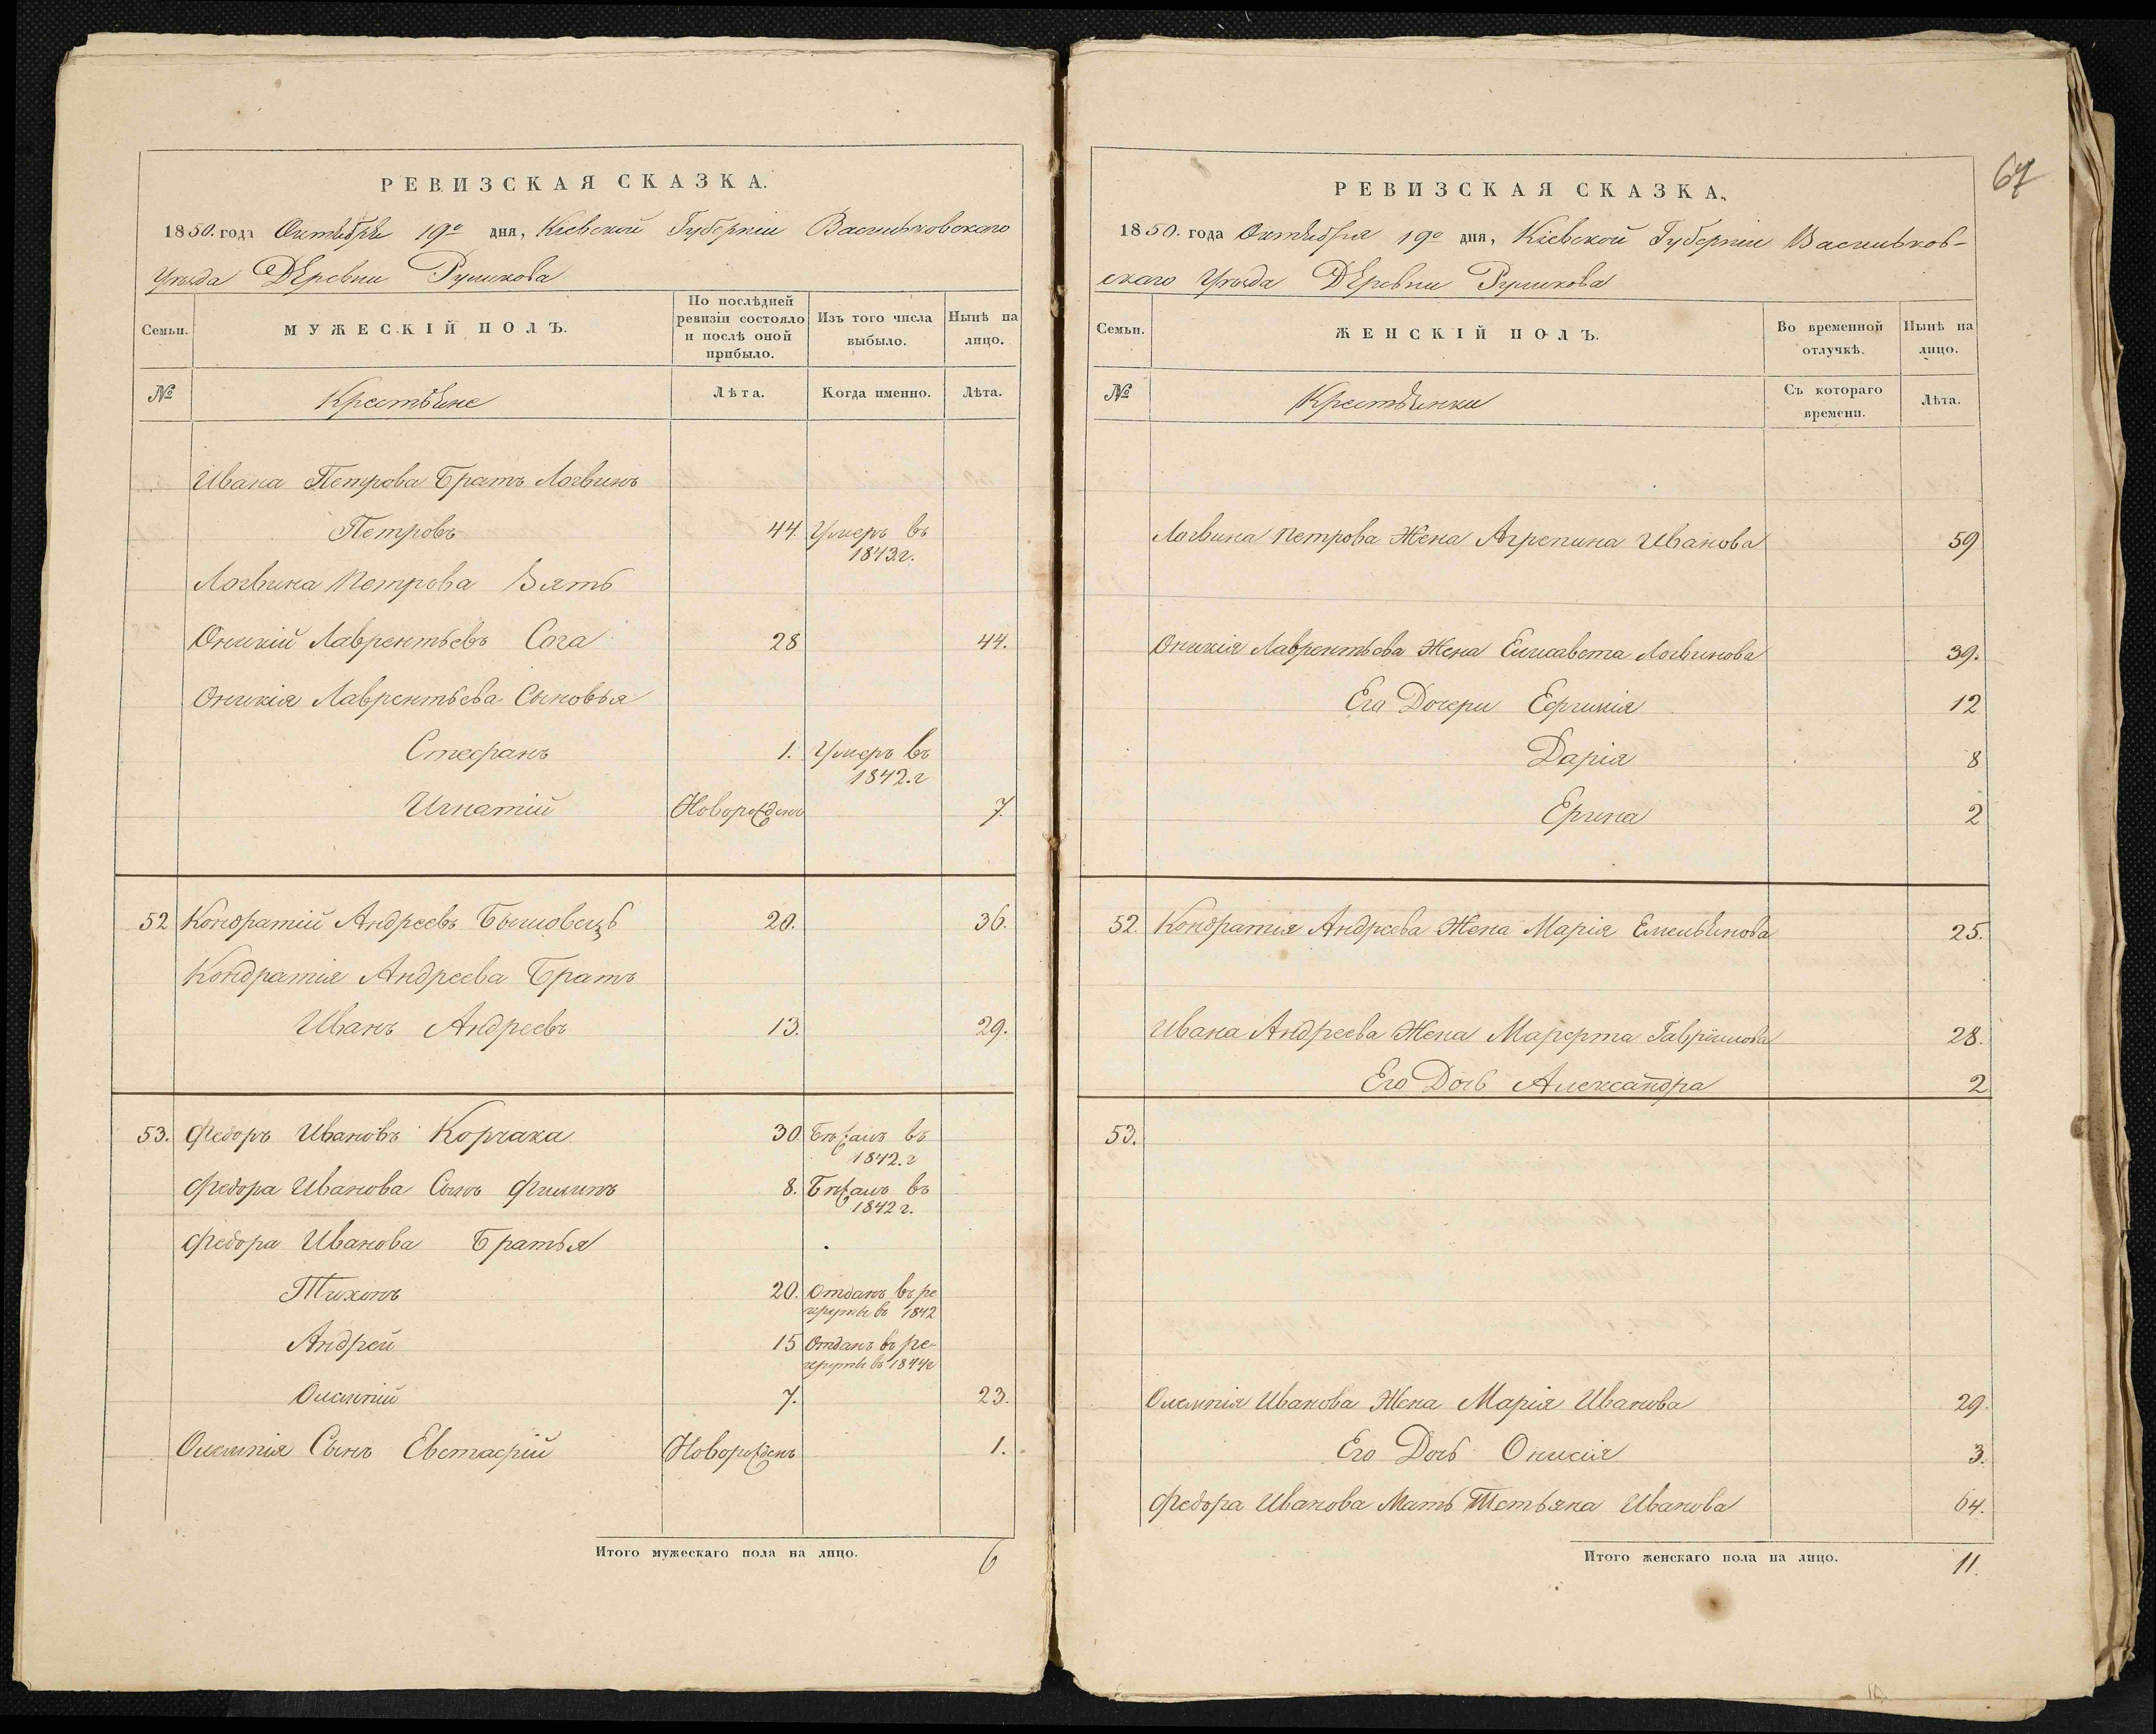 РЕВИЗСКАЯ СКАЗКА.
1850. года Октября 19го дня, Кіевской Губерніи Васильковскаго
Уѣзда Деревни Руликова
Семьи.
МУЖЕСКІЙ ПОЛЪ.
По послѣдней ревизіи состояло и послѣ оной прибыло.
Изъ того числа выбыло.
Нынѣ на лицо.
№
Крестьяне
Лѣта.
Когда именно.
Лѣта.
Ивана Петрова Братъ Логвинъ
Петровъ 44. Умеръ въ
1843.г.
Логвина Петрова Зять
Оникій Лаврентьевъ Сога 28 44.
Оникія Лаврентьева Сыновья
Стефанъ 1. Умеръ въ
1842.г
Игнатій Новорожденъ 7.
52 Кондратій Андреевъ 20. 36.
Кондратія Андреева Братъ
Иванъ Андреевъ 13. 29.
53. Федоръ Ивановъ Корчака 30. Бѣжалъ въ
1842.г
Федора Иванова Сынъ Филипъ 8. Бѣжалъ въ
1842 г.
Федора Иванова Братья
Тихонъ 20. Отданъ въ ре
круты въ 1842
Андрей 15 Отданъ въ ре-
круты въ 1844г
Олимпій 7. 23.
Олимпія Сынъ Евстафій Новорожденъ 1.
Итого мужескаго пола на лицо. 6
67
РЕВИЗСКАЯ СКАЗКА.
1850. года Октября 19го дня, Кіевской Губерніи Васильков-
скаго Уѣзда Деревни Руликова
Семьи.
ЖЕНСКІЙ ПОЛЪ.
Во временной отлучкѣ.
Нынѣ на лицо.
№
Крестьянки
Съ котораго времени.
Лѣта.
Логвина Петрова Жена Агрепина Иванова 59
Оникія Лаврентьева Жена Елисавета Логвинова 39.
Его Дочери Ефгинія 12
Дарія 8
Ерина 2
52. Кондратия Андреева Жена Марія Емельянова 25.
Ивана Андреева Жена Марфрта Гавріилова 28.
Его Дочь Александра 2
53.
Олимпія Иванова Жена Марія Иванова 29.
Его Дочь Онисія 3.
Федора Иванова Мать Тетьяна Иванова 64.
Итого женскаго пола на лицо. 11.